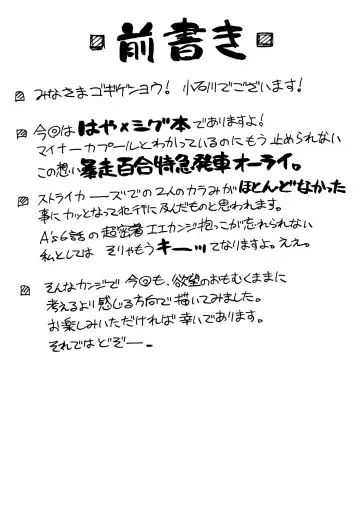 前書き
みなさまゴキゲンヨウ! 小石川でございます!
今回ははや×ミグ本でありますよ!
マイナーカプールとわかっているのにもう止められない
この想い暴走百合特急発車オーライ。
ストライカーズでの2人のカラミがほとんどなかった
事にカッとなって犯行に及んだものと思われます。
A's6話の超密着エエカンジ抱っこが忘れられない
私としては そりゃもうキーッてなりますよ。ええ。
そんなカンジで今回も、欲望のおもむくままに
考えるより感じる方向で描いてみました。
お楽しみいただければ幸いであります。
それではどぞー。